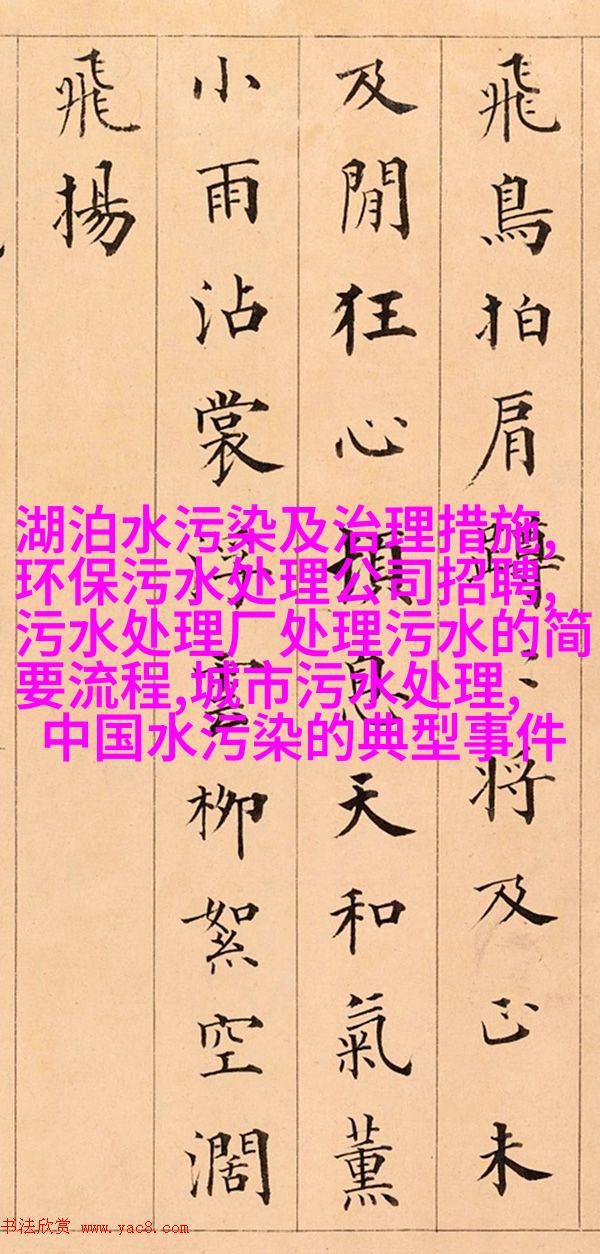 飛鳥拍肩將及正未
及閒狂心頓息天和氣薰
小雨沾裳雲柳絮空濶
飛揚
湖泊水污染及治理措施,
环保污水处理公司招聘,
污水处理厂处理污水的简
要流程,城市污水处理,
中国水污染的典型事件
书法欣赏 www.yac8.com